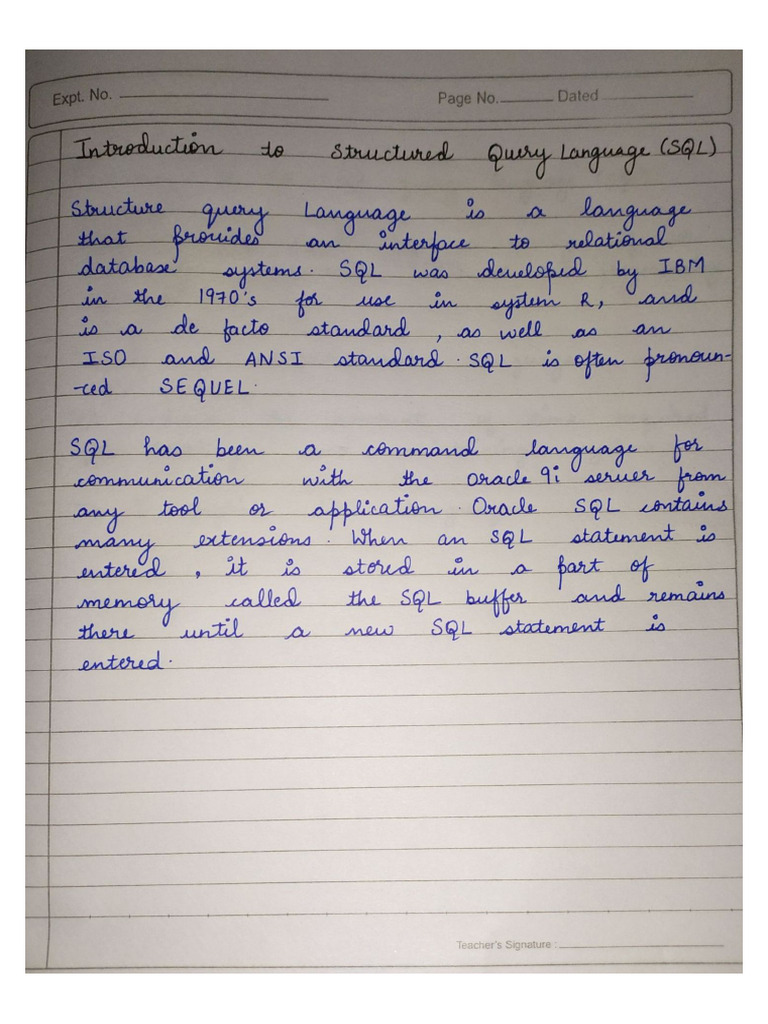 Expt. No.
Page No. Dated
Introduction to Structured Query Language (SQL)
Structure query Language is a language
that provides an interface to relational
database systems. SQL was developed by IBM
in the 1970's for use in system R, and
is a de facto standard, as well as an
ISO and ANSI standard. SQL is often pronoun-
-ced SEQUEL.
SQL has been a command language for
communication with the oracle 9i server from
any tool or application. Oracle SQL contains
many extensions. When an SQL statement is
entered, it is stored in a part of
memory called the SQL buffer and remains
there until a new SQL statement is
entered.
Teacher's Signature :